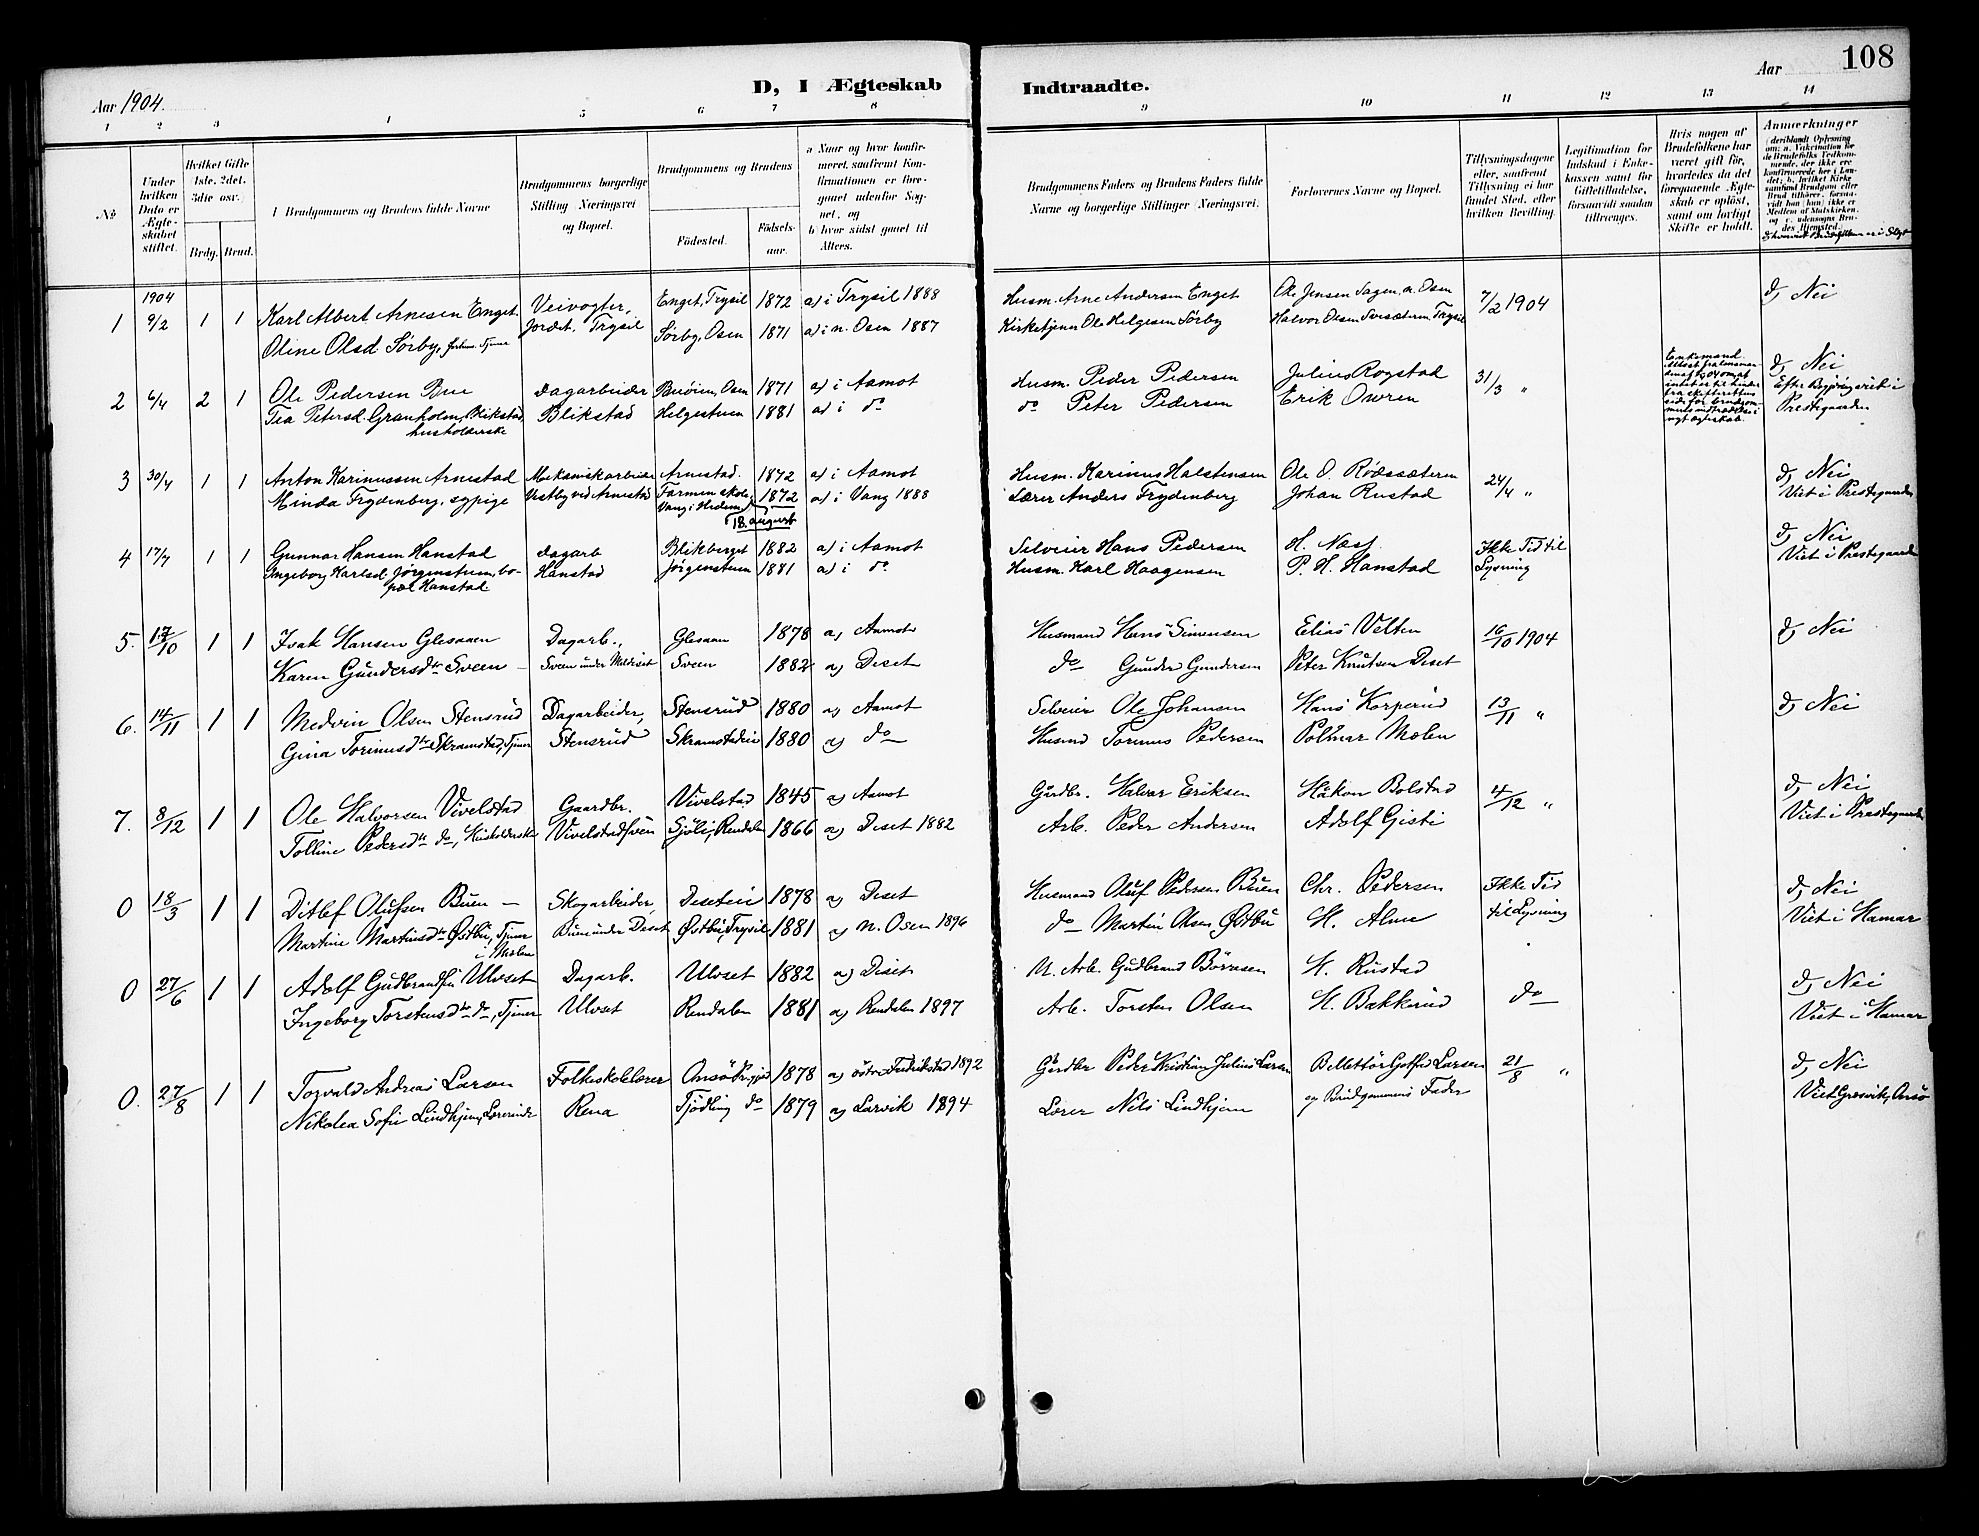 108
Aar 1904.
D, I Ægteskab
Indtraadte.
Aar
1 2 3 4 5 6 7 8
9 10 11 12 13 14
No
Under hvilken Dato er Ægteskabet stiftet.
Hvilket Gifte 1ste, 2det, 3die osv.)
Brdg. Brud.
Brudgommens og Brudens fulde Navne
Brudgommens borgerlige Stilling Næringsvei og Bopæl.
Brudgommens og Brudens
Fødested.
Fødselsaar.
a Naar og hvor konfirmeret, saafremt Konfirmationen er foregaaet udenfor Sognet, og
b hvor sidst gaaet til Alters.
Brudgommens Faders og Brudens Faders fulde Navne og borgerlige Stillinger (Næringsvei.
Forlovernes Navne og Bopæl.
Tillysningsdagene eller, saafremt Tillysning ei har fundet Sted, efter hvilken Bevilling.
Legitimation for Indskud i Enkekassen samt for Giftetilladelse, forsaavidt saadan tiltrænges.
Hvis nogen af Brudefolkene har været gift før, hvorledes da det foregaaende Ægteskab er opløst, samt om lovligt Skifte er holdt.
Anmærkninger
1904
1 9/2 1 1 Karl Albert Arnesen Enget. Veivogter, Enget, Trysil 1872 a) i Trysil 1888 Husm. Arne Andersen Enget Ole Jensen Sagen, n. Osen 7/2 1904 d, Nei
Oline Olsd Sörby, Jordet, Trysil Sörby, Osen 1871 a) i n. Osen 1887 Kirketjener Ole Helgesen Sörby Halvor Olsen Trysil
2 6/4 2 1 Ole Pedersen Bue Dagarbeider Buöien, Osen 1871 a) i Aamot Husm. Peder Pedersen Julius Rogstad 31/3 " Enkemand d, Nei
Tea Petersd. Granholm, Blikstad, Blikstad Helgestuen 1881 a) i do do Peter Pedersen Erik Owren Prestegaarden
husholderske
3 30/4 1 1 Anton Karinussen Arnestad Mekanisk arbeider Arnestad. 1872 a) i Aamot Husm. Karinus Halstensen Ole O. Rödssæteren 24/4 " d, Nei
Minda Frydenberg, sypige Vestby ved Arnestad Farmen skole, Vang i Hedem. 1872 a) i Vang 1888 Lærer Anders Frydenberg Johan Rustad Viet i Prestegaarden
18. august
4 17/7 1 1 Gunnar Hansen Hanstad Dagarb Blikberget 1882 a) i Aamot Selveier Hans Pedersen H. Næss. Ikke Tid til d, Nei
Ingeborg Karlsd. Jörgenstuen, bo- Hanstad Jörgenstuen 1881 a) i do Husm. Karl Haagensen P. H. Hanstad Lysning Viet i Prestegaarden
pæl Hanstad
5. 17/10 1 1 Isak Hansen Glesaaen Dagarb., Glesaaen 1878 a, Aamot Husmand Hans Simensen Elias Velten 16/10 1904 d, Nei
Karen Gundersdtr Sveen – Sveen under Sveen 1882 a, Deset do Gunder Gundersen Peter Knutsen Deset
6. 14/11 1 1 Medvin Olsen Stensrud Dagarbeider, Stensrud 1880 a, Aamot Selveier Ole Johansen Hans Korperud 13/11 " d, Nei
Gina Torinusdtr Skramstad, Tjener Stensrud Skramstadeie 1880 a, do Husmd Torinus Pedersen Polmar Molen
7. 8/12 1 1 Ole Halvorsen Vivelstad Gaardbr. Vivelstad 1845 a, Aamot Gårdbr. Halvor Eriksen Håkon Bolstad 4/12 " d, Nei
Tolline Pedersdtr do, Husholderske Vivelstadsveen Sjöli, Rendalen 1866 a, Deset 1882 Arb. Peder Andersen Adolf Gisti Viet i Prestegaarden
0 18/3 1 1 Ditlef Olufsen Buen – Skogarbeider, Deseteie 1878 a, Deset Husmand Oluf Pedersen Buen Chr. Pedersen Ikke Tid d, Nei
Martine Martinsdtr Østbu, Tjener Buen under Deset Østbu, Trysil 1881 a, n. Osen 1896 do Martin Olsen Østbu H. Alme til Lysning Viet i Hamar
i Molen
0 27/6 1 1 Adolf Gudbrandsen Ulvset Dagarb. Ulvset 1882 a) Deset U. Arb. Gudbrand Börresen H. Rustad d, Nei
Ingeborg Torstensdtr do, Tjener Ulvset Rendalen 1881 a, Rendalen 1897 Arb. Torsten Olsen H. Bakkerud do Viet i Hamar
0. 27/8 1 1 Torvald Andreas Larsen Folkeskolelærer Onsö 1878 a, östre Fredrikstad 1892 Gårdbr Peder Kristian Julius Larsen Larsen 21/8 " d, Nei
Nikolea Sofie Lindhjem, Lærerinde Rena Tjödling do 1879 a, Larvik 1894 Lærer Nils Lindhjem og Brudgommens Fader Viet Græsvik, Onsö